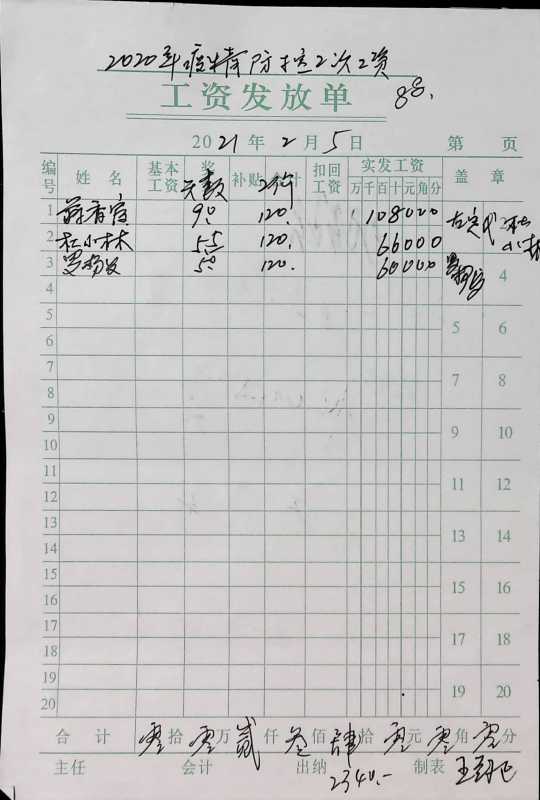 2020年疫情防控2次工资
工资发放单 88.
2021年2月5日 第 页
编号 姓名 基本工资 奖 天数 补贴 合计 工价 扣回工资 实发工资 万千百十元角分 盖章
1 香 90 120. 108000
2 杜小林 55 120. 66000 2
3 罗 50 120. 60000
4 4
5 5 6
6
7 7 8
8
9 9 10
10
11 11 12
12
13 13 14
14
15 15 16
16
17 17 18
18
19 19 20
20
合计 零拾零万贰仟叁佰肆拾零元零角零分
主任 会计 出纳 2340.- 制表 王